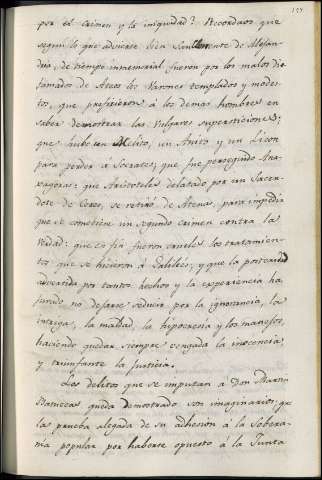 157
por el crimen y la iniquidad? Recordaos que
segun lo que advierte bien San Clemente de Alejan-
dria, de tiempo inmemorial fueron por los malos dis-
famados de Ateos los Varones templados y modes-
tos, que prefirieron á los demas hombres en
saber demostrar las vulgares supersticiones;
que hubo un Melito, un Anito y un Licon
para perder á Socrates; que fue perseguido Ana-
xagoras: que Aristoteles delatado por un Sacer-
dote de Ceres, se retiró de Atenas, para impedir
que se cometiese un segundo crimen contra la
Verdad: que en fin fueron crueles los tratamien-
tos que se hicieron á Galileo; y que la posteridad
advertida por tantos hechos y la experiencia ha
jurado no dejarse seducir por la ignorancia, la
intriga, la maldad, la hipocresia y los manejos,
haciendo quedar siempre vengada la inocencia,
y triunfante la Justicia.
Los delitos que se imputan á Don Martin
queda demostrado son imaginarios; que
la prueba alegada de su adhesion á la Sobera-
nia popular por haberse opuesto á la Junta